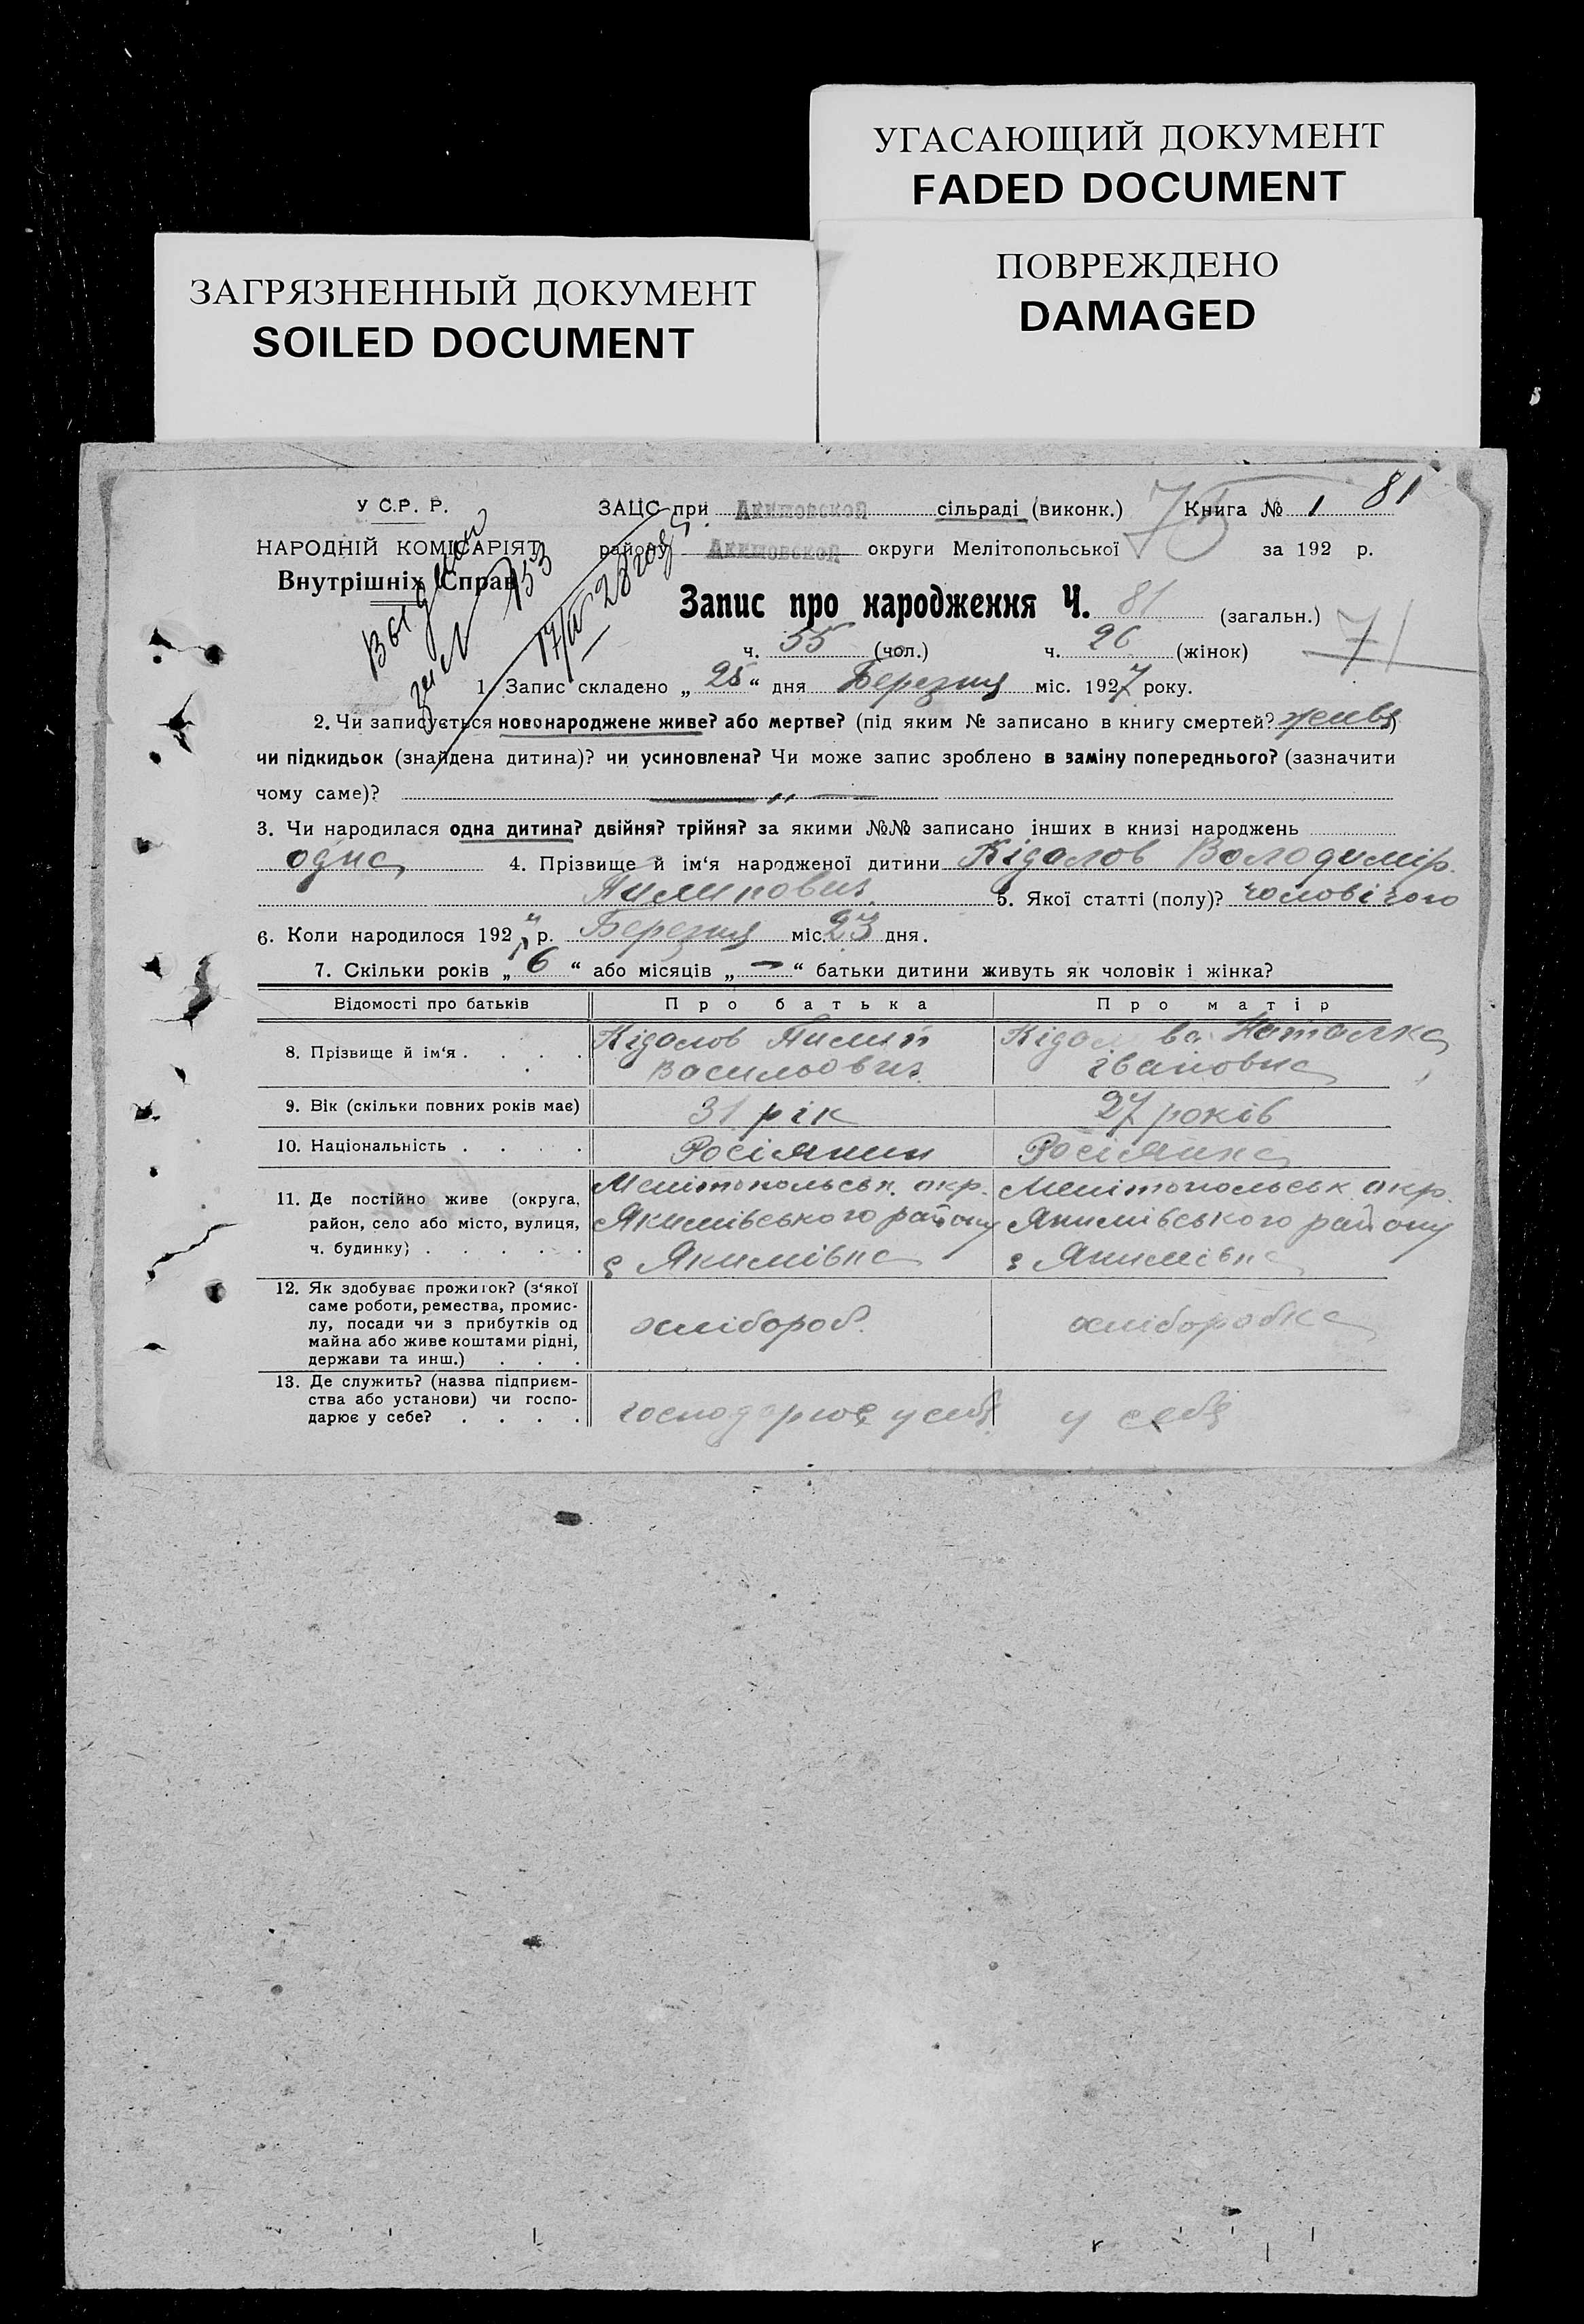 УГАСАЮЩИЙ ДОКУМЕНТ
FADED DOCUMENT
ПОВРЕЖДЕНО
DAMAGED
ЗАГРЯЗНЕННЫЙ ДОКУМЕНТ
SOILED DOCUMENT
81
У С.Р. Р. ЗАЦС при Акимовской сільраді (виконк.) 75 Книга № 1
НАРОДНІЙ КОМІСАРІЯТ району Акимовской округи Мелітопольської за 192 р.
Внутрішніх Справ
153
17/IV 28 года
Запис про народження Ч. 81 (загальн.)
71
ч. 55 (чол.) ч. 26 (жінок)
1. Запис складено „ 25 “ дня Березня міс. 1927 року.
2. Чи записується новонароджене живе? або мертве? (під яким № записано в книгу смертей? живе)
чи підкидьок (знайдена дитина)? чи усиновлена? Чи може запис зроблено в заміну попереднього? (зазначити
чому саме)? — „ —
3. Чи народилася одна дитина? двійня? трійня? за якими №№ записано інших в книзі народжень
одна 4. Прізвище й ім‘я народженої дитини Кідалов Володимір
Пилипович 5. Якої статті (полу)? чоловічого
6. Коли народилося 192 7 р. Березня міс. 23 дня.
7. Скільки років „ 6 “ або місяців „ — “ батьки дитини живуть як чоловік і жінка?
Відомості про батьків Про батька Про матір
8. Прізвище й ім‘я . . . . Кідалов Пилип Кідалова Наталка
Васильович Івановна
9. Вік (скільки повних років має) 31 рік 27 років
10. Національність . . . . Росіянин Росіянка
11. Де постійно живе (округа, Мелітопольськ. окр. Мелітопольськ окр.
район, село або місто, вулиця, Якимівського району Якимівського району
ч. будинку) . . . . . с Якимівка с Якимівка
12. Як здобуває прожиток? (з‘якої
саме роботи, ремества, промис-
лу, посади чи з прибутків од хлібороб. хліборобка
майна або живе коштами рідні,
держави та инш.) . . .
13. Де служить? (назва підприєм-
ства або установи) чи госпо-
дарює у себе? . . . . господарює у себе у себе